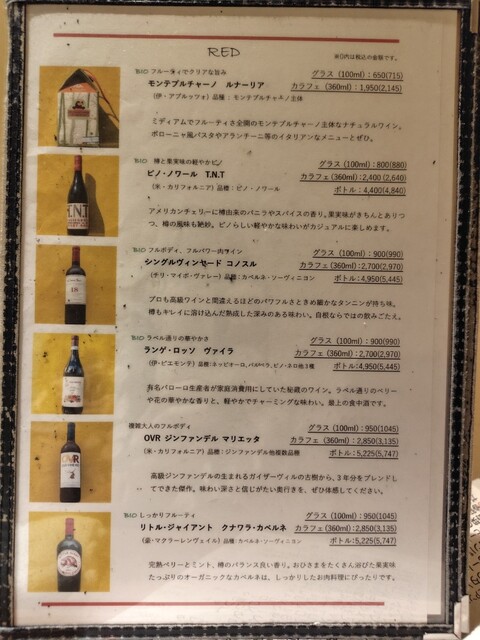 RED
※()内は税込の金額です。
BIO フルーティでクリアな旨み
グラス (100ml)：650(715)
モンテプルチャーノ ルナーリア
カラフェ (360ml)：1,950(2,145)
(伊・アブルッツォ) 品種：モンテプルチャーノ主体
ミディアムでフルーティさ全開のモンテプルチャーノ主体なナチュラルワイン。
ボローニャ風パスタやアランチーニ等のイタリアンなメニューとぜひ。
BIO 樽と果実味の軽やかピノ
グラス (100ml)：800(880)
ピノ・ノワール T.N.T
カラフェ(360ml)：2,400 (2,640)
(米・カリフォルニア) 品種：ピノ・ノワール
ボトル：4,400(4,840)
アメリカンチェリーに樽由来のバニラやスパイスの香り。果実味がきちんとありつ
つ、樽の風味も絶妙。ピノらしい軽やかな味わいがカジュアルに楽しめます。
BIO フルボディ、フルパワー肉ワイン
グラス (100ml)：900(990)
シングルヴィンヤード コノスル
カラフェ(360ml)：2,700(2,970)
(チリ・マイポ・ヴァレー) 品種：カベルネ・ソーヴィニヨン
ボトル：4,950(5,445)
プロも高級ワインと間違えるほどのパワフルさときめ細かなタンニンが持ち味。
樽もキレイに溶け込んだ熟成した深みのある味わい。自根ならではの飲みごたえ。
BIO ラベル通りの華やかさ
グラス (100ml)：900(990)
ランゲ・ロッソ ヴァイラ
カラフェ(360ml)：2,700(2,970)
(伊・ピエモンテ) 品種：ネッビオーロ、バルベーラ、ピノ・ネロ他3種
ボトル：4,950(5,445)
有名バローロ生産者が家庭消費用にしていた秘蔵のワイン。ラベル通りのベリー
や花の華やかな香りと、軽やかでチャーミングな味わい。最上の食中酒です。
複雑大人のフルボディ
グラス (100ml)：950(1045)
OVR ジンファンデル マリエッタ
カラフェ(360ml)：2,850(3,135)
(米・カリフォルニア) 品種：ジンファンデル他複数品種
ボトル：5,225(5,747)
高級ジンファンデルの生まれるガイザーヴィルの古樹から、3年分をブレンドし
てできた傑作。味わい深さと信じがたい奥行きを、ぜひ体感してください。
BIO しっかりフルーティ
グラス (100ml)：950(1045)
リトル・ジャイアント クナワラ・カベルネ
カラフェ(360ml)：2,850(3,135)
(豪・マクラーレンヴェイル) 品種：カベルネ・ソーヴィニヨン
ボトル：5,225(5,747)
完熟ベリーとミント、樽のバランス良い香り。おひさまをたくさん浴びた果実味
たっぷりのオーガニックなカベルネは、しっかりしたお肉料理にぴったりです。
T.N.T
OVR